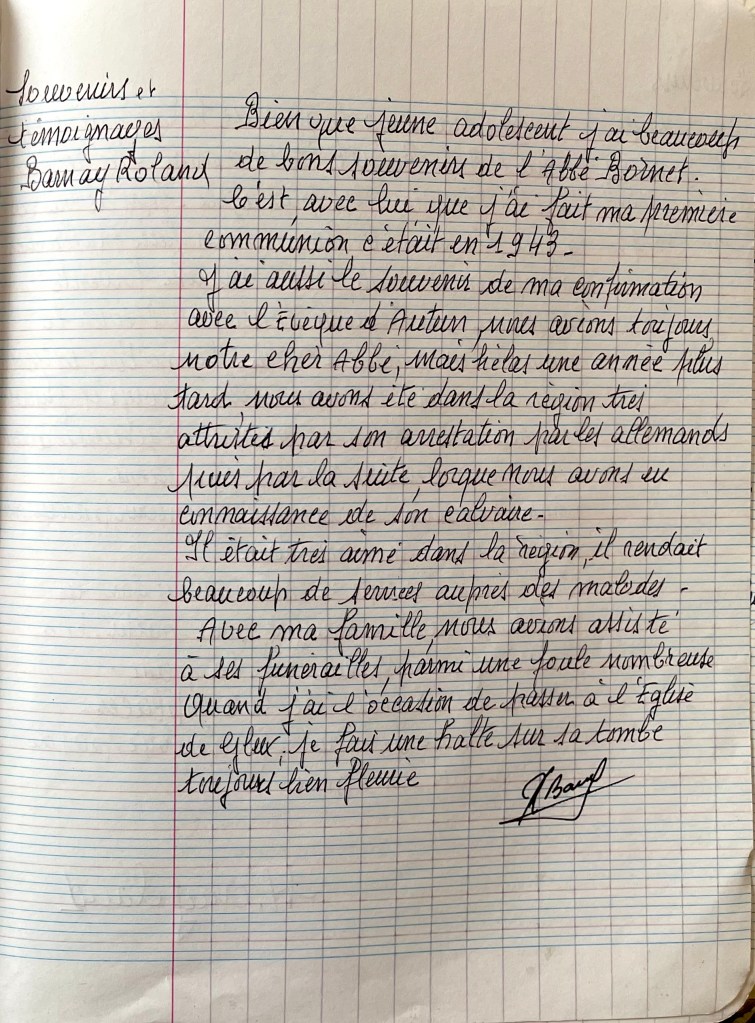 Souvenirs et
témoignages
Barnay Roland
Bien que jeune adolescent j'ai beaucoup
de bons souvenirs de l'Abbé Bornet.
C'est avec lui que j'ai fait ma première
communion c'était en 1943-
J'ai aussi le souvenir de ma confirmation
avec l'Evêque d'Autun, nous avions toujours
notre cher Abbé, mais hélas une année plus
tard, nous avons été dans la région très
attristés par son arrestation par les allemands
puis par la suite, lorque nous avons eu
connaissance de son calvaire-
Il était très aimé dans la région, il rendait
beaucoup de services auprès des malades-
Avec ma famille, nous avions assisté
à ses funérailles, parmi une foule nombreuse
Quand j'ai l'occasion de passer à l'Eglise
de Glux, je fais une halte sur sa tombe
toujours bien fleurie